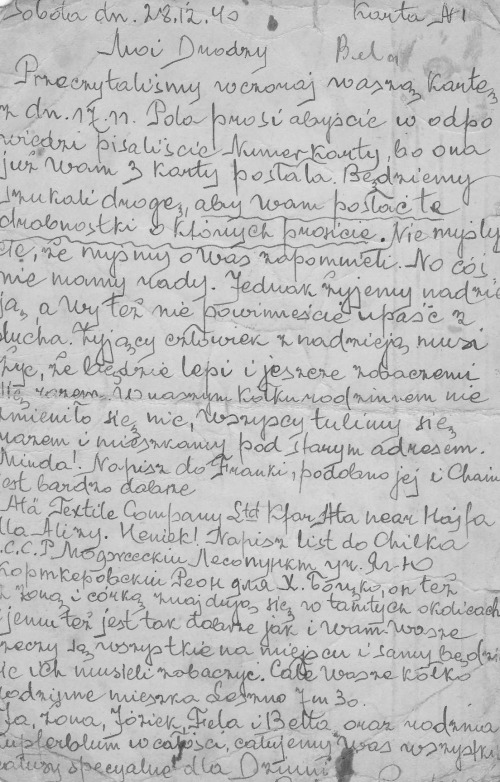 Sobota dn. 28.12.40 Karta № 1
Moi Drodzy Bela
Przeczytaliśmy wczoraj waszą kartę
z dn. 17.11. Pola prosi abyście w odpo
wiedzi pisaliście Numer Karty, bo ona
już wam 3 karty posłała. Będziemy
szukali drogę, aby wam posłać te
drobnostki o których prosicie. Nie myśly
cie, że myśmy o was zapomneli. No cóż
nie mamy rady. Jednak żyjemy nadzie
ją, a wy też nie powinneście upaść z
ducha. Żyjący człowiek z nadzieją musi
żyć, że będzie lepi i jeszcze zobaczemi
się razem. W naszym kółku rodzinnem nie
zmieniło się nic, wszyscy tulimy się
razem i mieszkamy pod starym adresem.
Minda! Napisz do Franki, podobno jej i Chaim
jest bardzo dobrze
Ata Textile Company Ltd Kfar Ata near Hajfa
dla Alizy. Heniek! Napisz list do Chilka
C.C.C.P. Лесопункт
Кортке­ровский Реон для Х. on też
z żoną i córką znajdują się w tamtych okolicach
i jemu też jest tak dobrze jak i wam wasze
rzeczy są wszystkie na miejscu i samy będzi
cie ich musieli zobaczyć. Całe wasze kółko
rodzinne mieszka Leszno 7 m 30.
Ja, żona, Józiek, Fela i Bella oraz rodzina
w całości, całujemy was wszystki
specyalne dla Dziuni